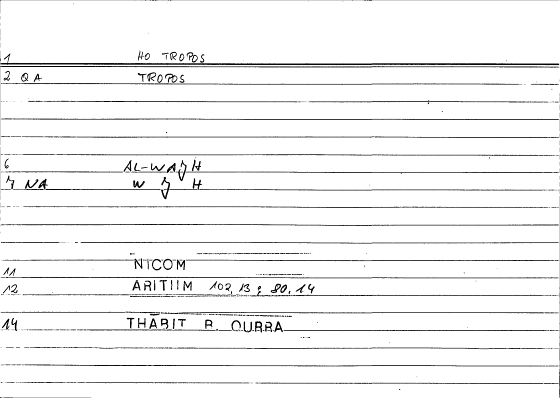 1 HO TROPOS
2 QA TROPOS
6 AL-WAJH
7 NA W J H
11 NICOM
12 ARITIIM 102,13; 80,14
14 THĀBIT B. QURRA